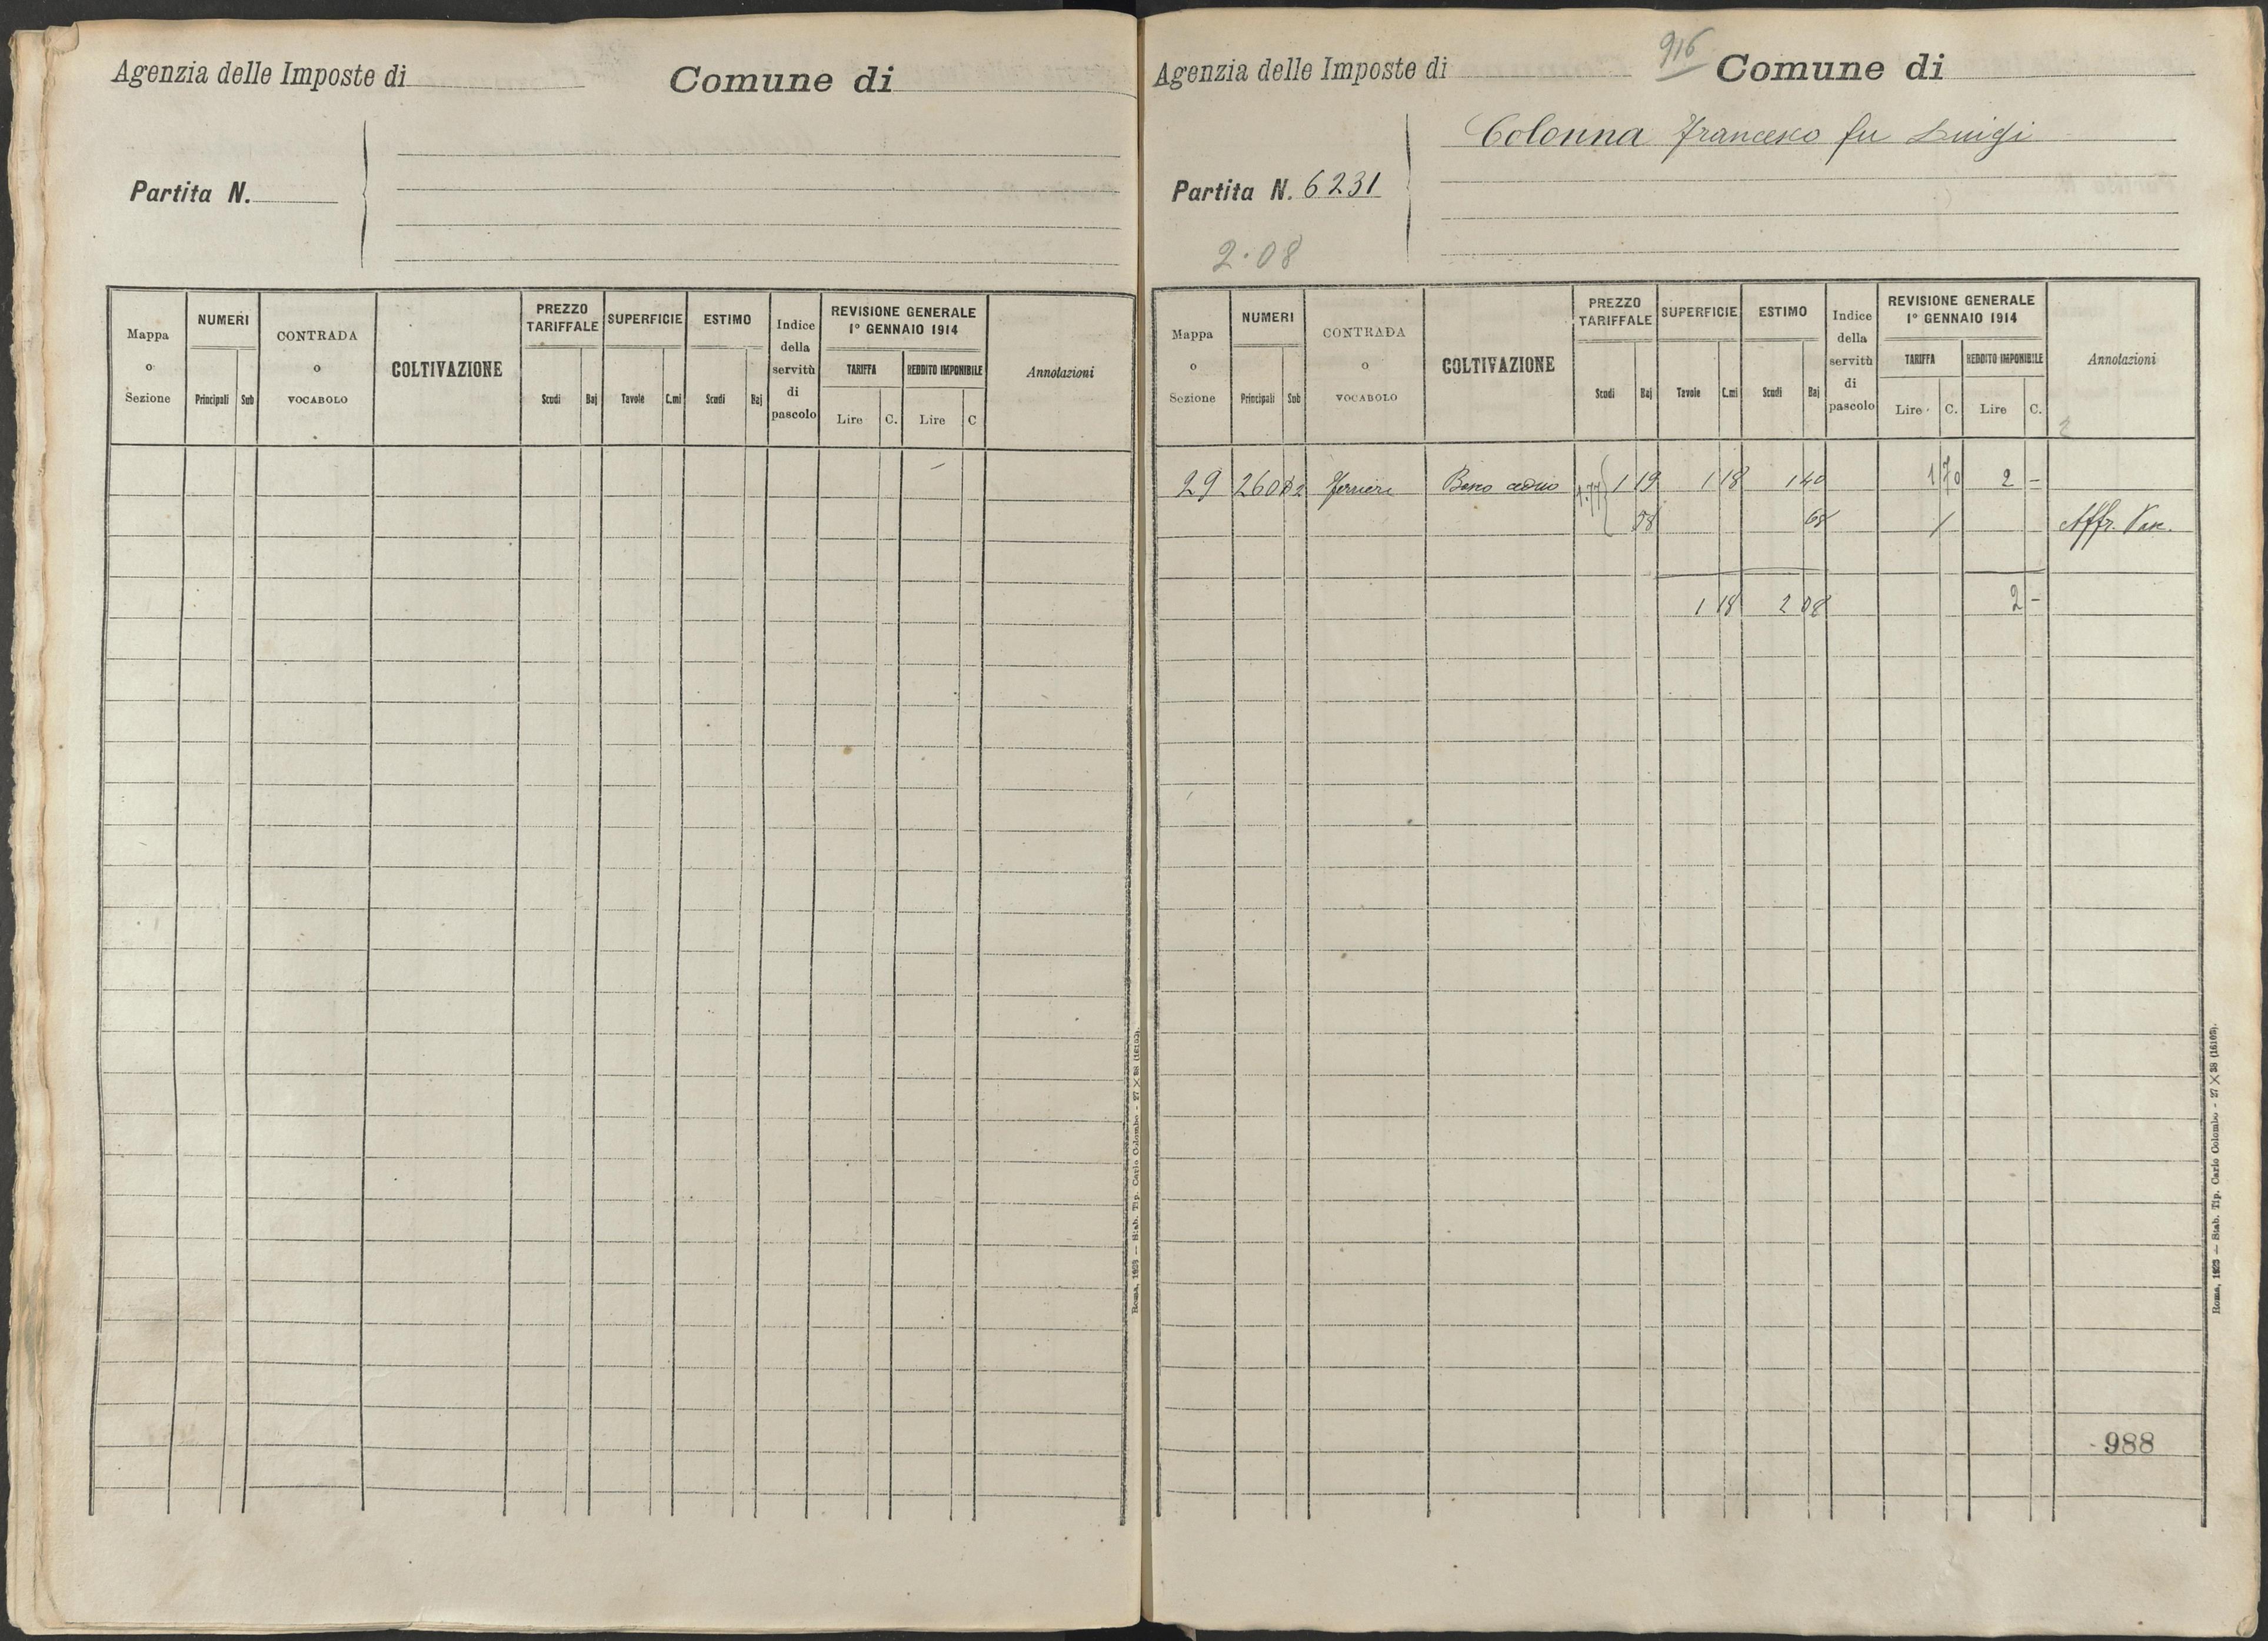 Agenzia delle Imposte di Comune di
Partita N.
Mappa o Sezione NUMERI Principali Sub CONTRADA o VOCABOLO COLTIVAZIONE PREZZO TARIFFALE Scudi Baj SUPERFICIE Tavole C.mi ESTIMO Scudi Baj Indice della servitù di pascolo REVISIONE GENERALE 1º GENNAIO 1914 TARIFFA Lire C. REDDITO IMPONIBILE Lire C Annotazioni
Roma, 1923 — Stab. Tip. Carlo Colombo - 27 X 38 (16103).
916
Agenzia delle Imposte di Comune di
Colonna Francesco fu Luigi
Partita N. 6231
2.08
Mappa o Sezione NUMERI Principali Sub CONTRADA o VOCABOLO COLTIVAZIONE PREZZO TARIFFALE Scudi Baj SUPERFICIE Tavole C.mi ESTIMO Scudi Baj Indice della servitù di pascolo REVISIONE GENERALE 1º GENNAIO 1914 TARIFFA Lire C. REDDITO IMPONIBILE Lire C. Annotazioni
2
29 260 1.77 1 19 1 18 1 40 1 70 2 -
58 68 / Affr.
1 18 2 08 2 -
988
Roma, 1923 — Stab. Tip. Carlo Colombo - 27 X 38 (16103).